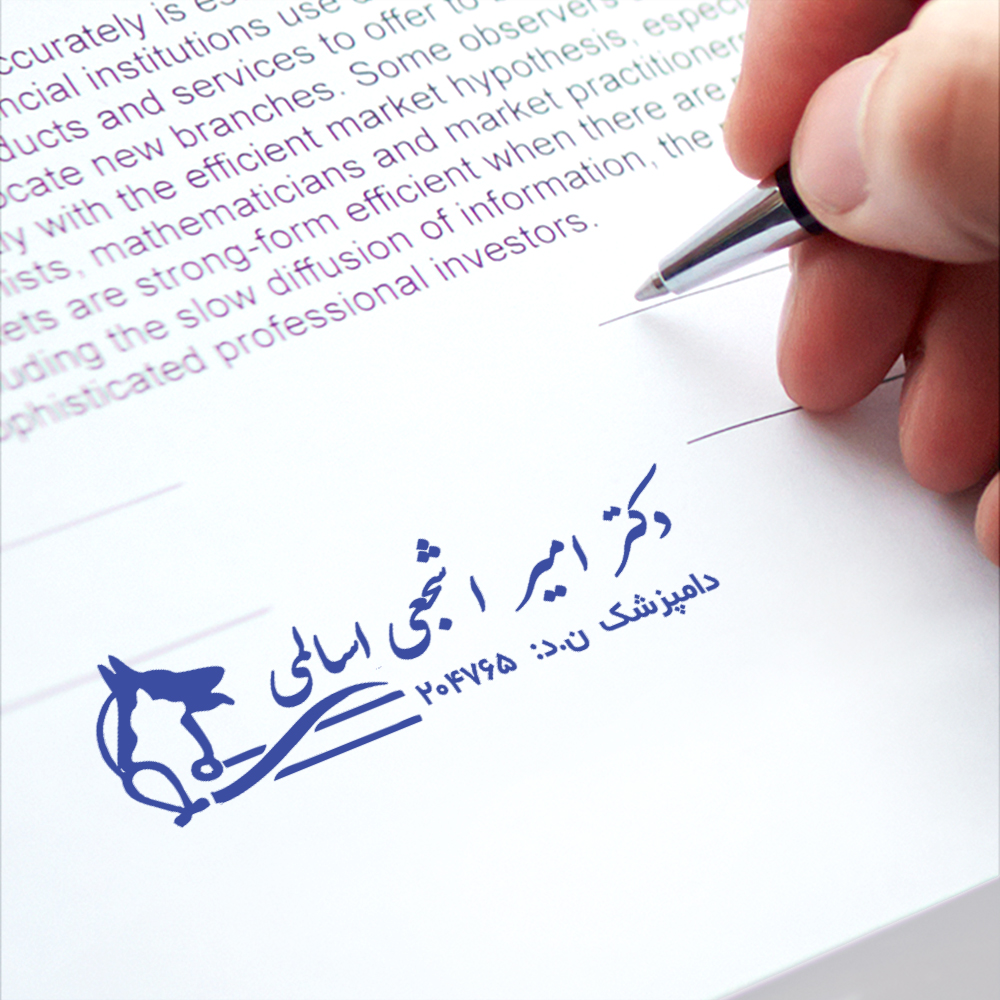 ccurately is es
ncial institutions use
ducts and services to offer to
ocate new branches. Some observers
ly with the efficient market hypothesis, especi
ists, mathematicians and market practitioners
ets are strong-form efficient when there are
uding the slow diffusion of information, the
ophisticated professional investors.
دکتر امیر اشجعی اسالمی
دامپزشک ن.د: ۲۰۴۷۶۵